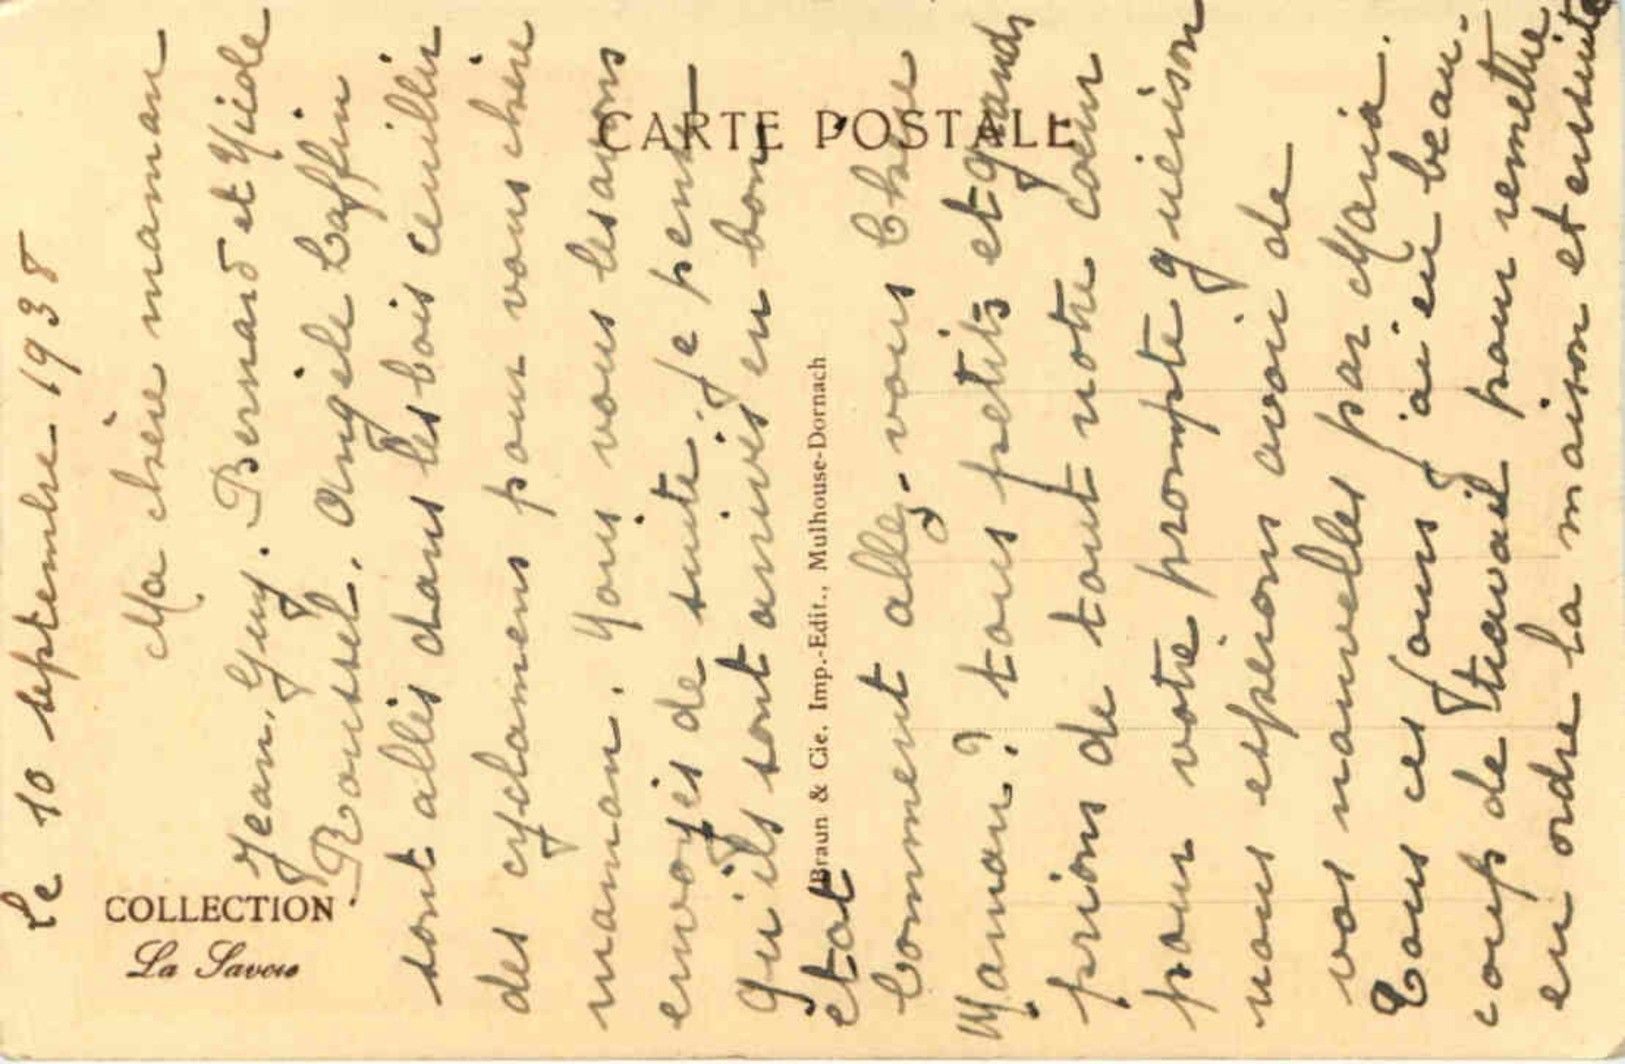 CARTE POSTALE
COLLECTION
La Savoie
Braun & Cie. Imp.-Edit., Mulhouse-Dornach
Le 10 septembre 1938
Ma chère maman
Jean, Guy. Bernard et
Roussel. Angèle
sont allés dans les bois ceuillir
des cyclamens pour vous chère
maman. Nous vous les avons
envoyés de suite. Je pense
qu'ils sont arrivés en bon
etat
Comment allez-vous Chère
Maman? tous petits et grands
prions de tout notre cœur
pour votre prompte guérison
nous espérons avoir de
vos nouvelles par Maria.
Tous ces jours j'ai eu beau-
coup de travail pour remettre
en ordre la maison et ensuite